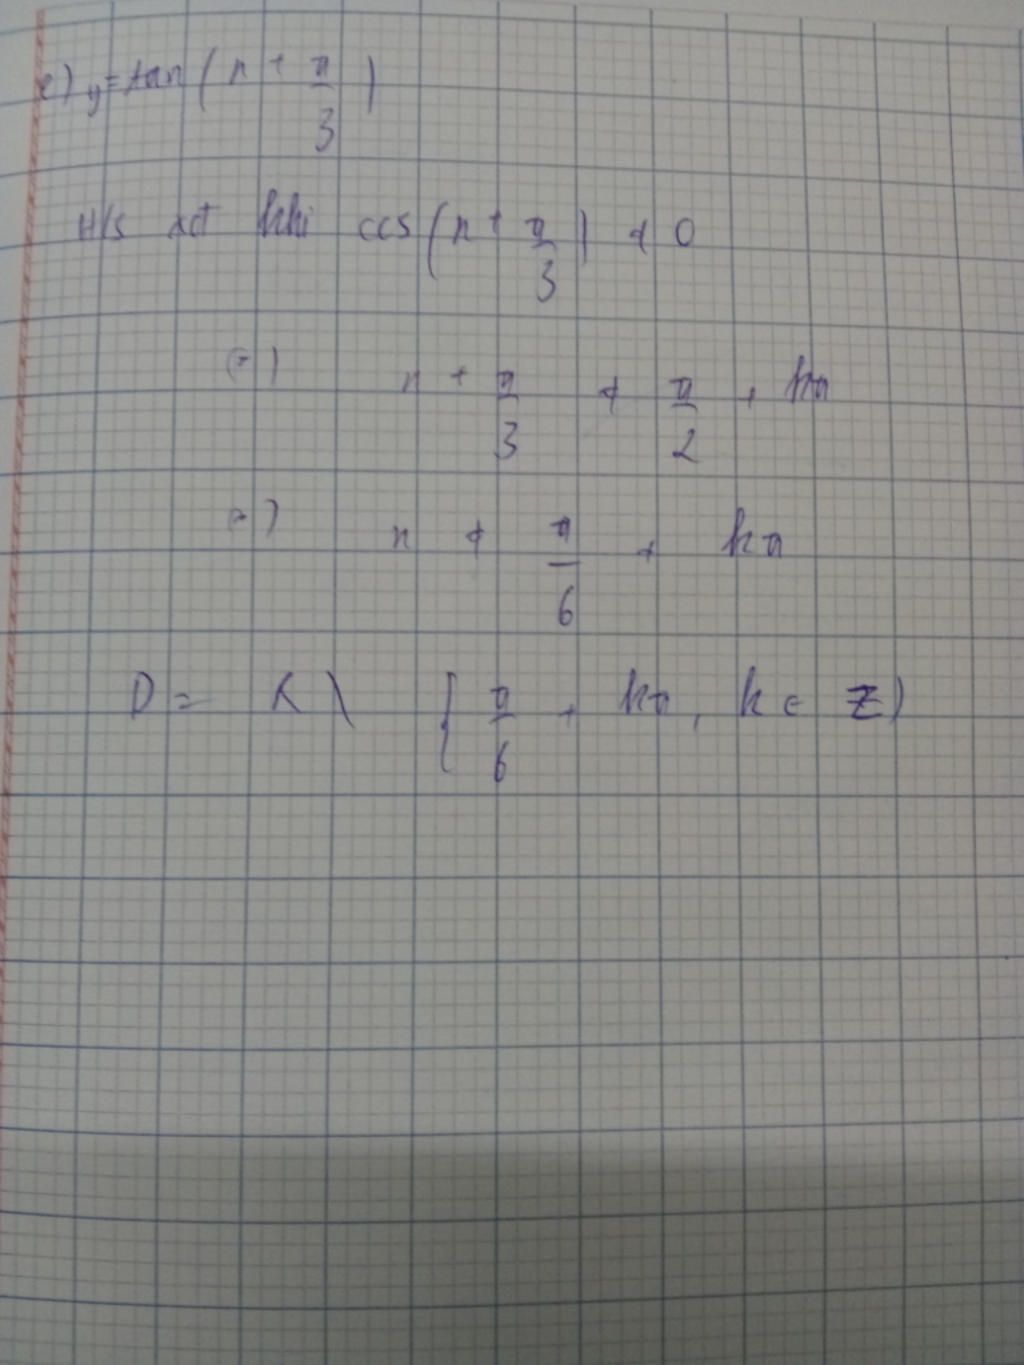 e) y = tan ( x + π/3 )
H/s xđ khi cos ( x + π/3 ) ≠ 0
(=) x + π/3 ≠ π/2 + kπ
(=) x ≠ π/6 + kπ
D = R \ { π/6 + kπ, k ∈ Z }